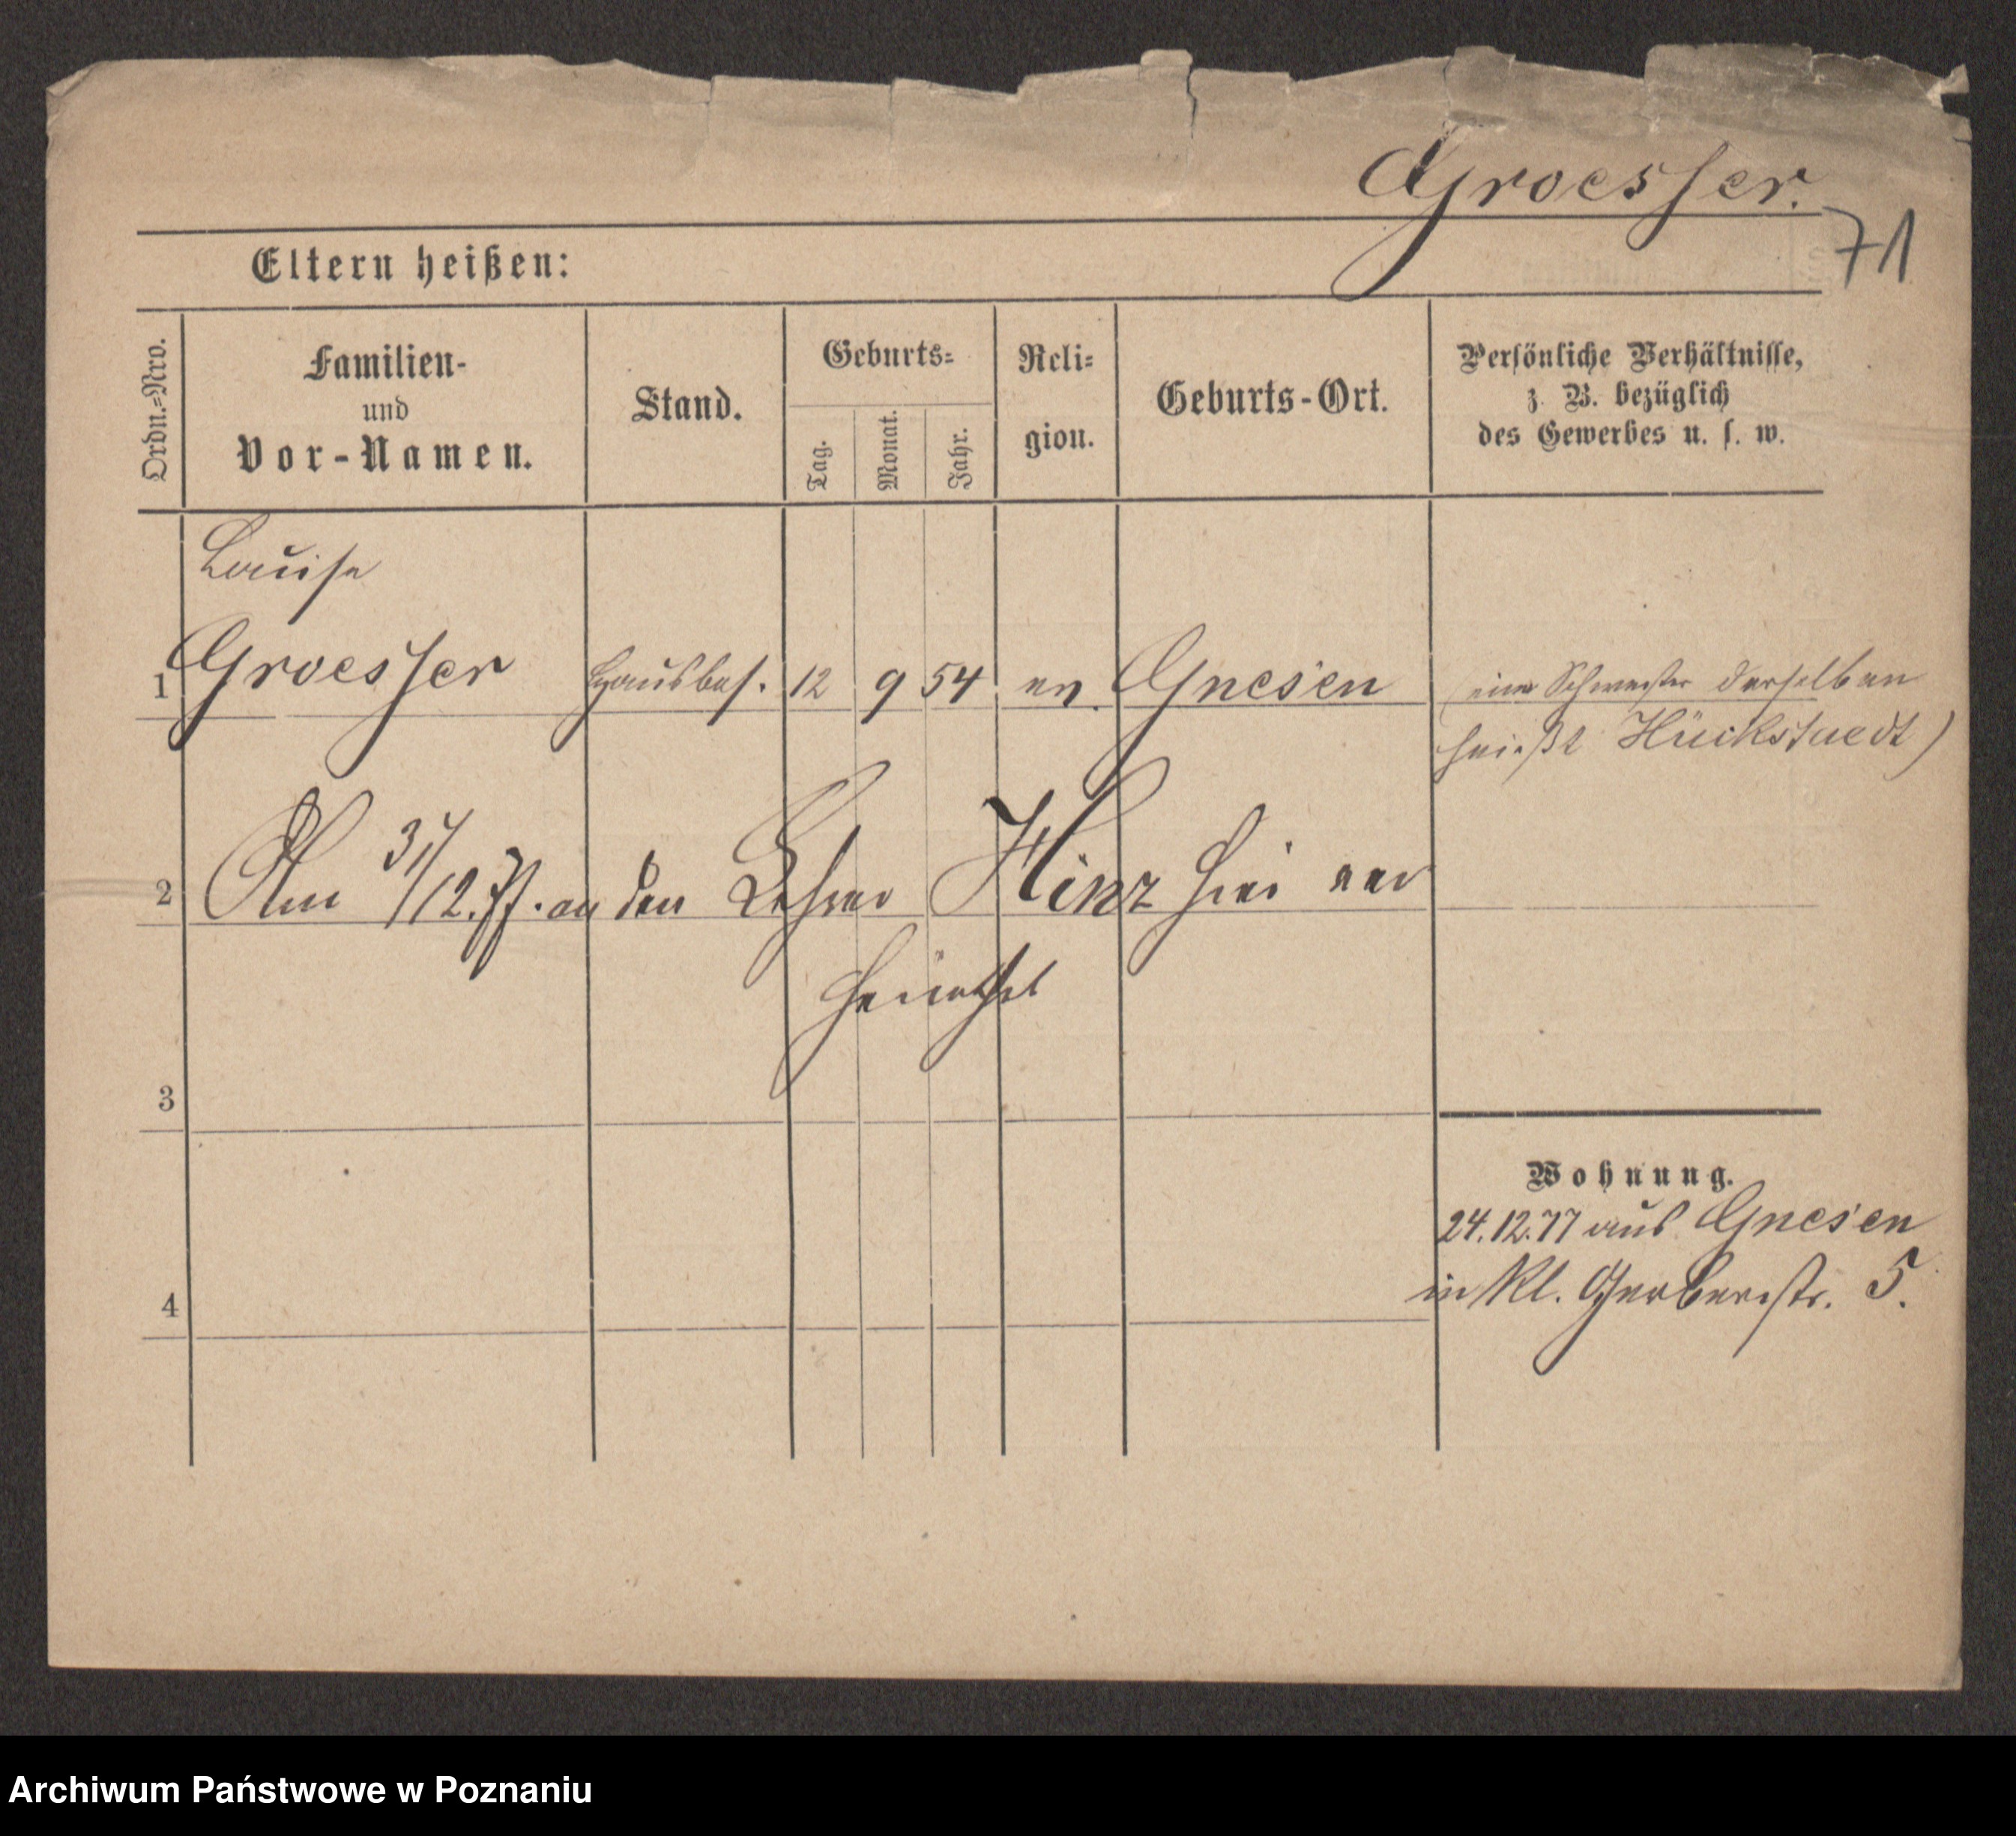 Groesser.
71
Eltern heißen:
Ordn.=Nro.
Familien-
und
Vor-Namen.
Stand.
Geburts=
Tag.
Monat.
Jahr.
Reli=
gion.
Geburts-Ort.
Persönliche Verhältnisse,
z. B. bezüglich
des Gewerbes u. s. w.
Louise
1 Groesser Hausbes. 12 9 54 ev. Gnesen (eine Schwester derselben
heißt Hückstaedt)
2 Am 31/12.77. an den Lehrer Hinz hier ver
heirathet
3
Wohnung.
24.12.77 aus Gnesen
in Kl. Gerberstr. 5.
4
Archiwum Państwowe w Poznaniu